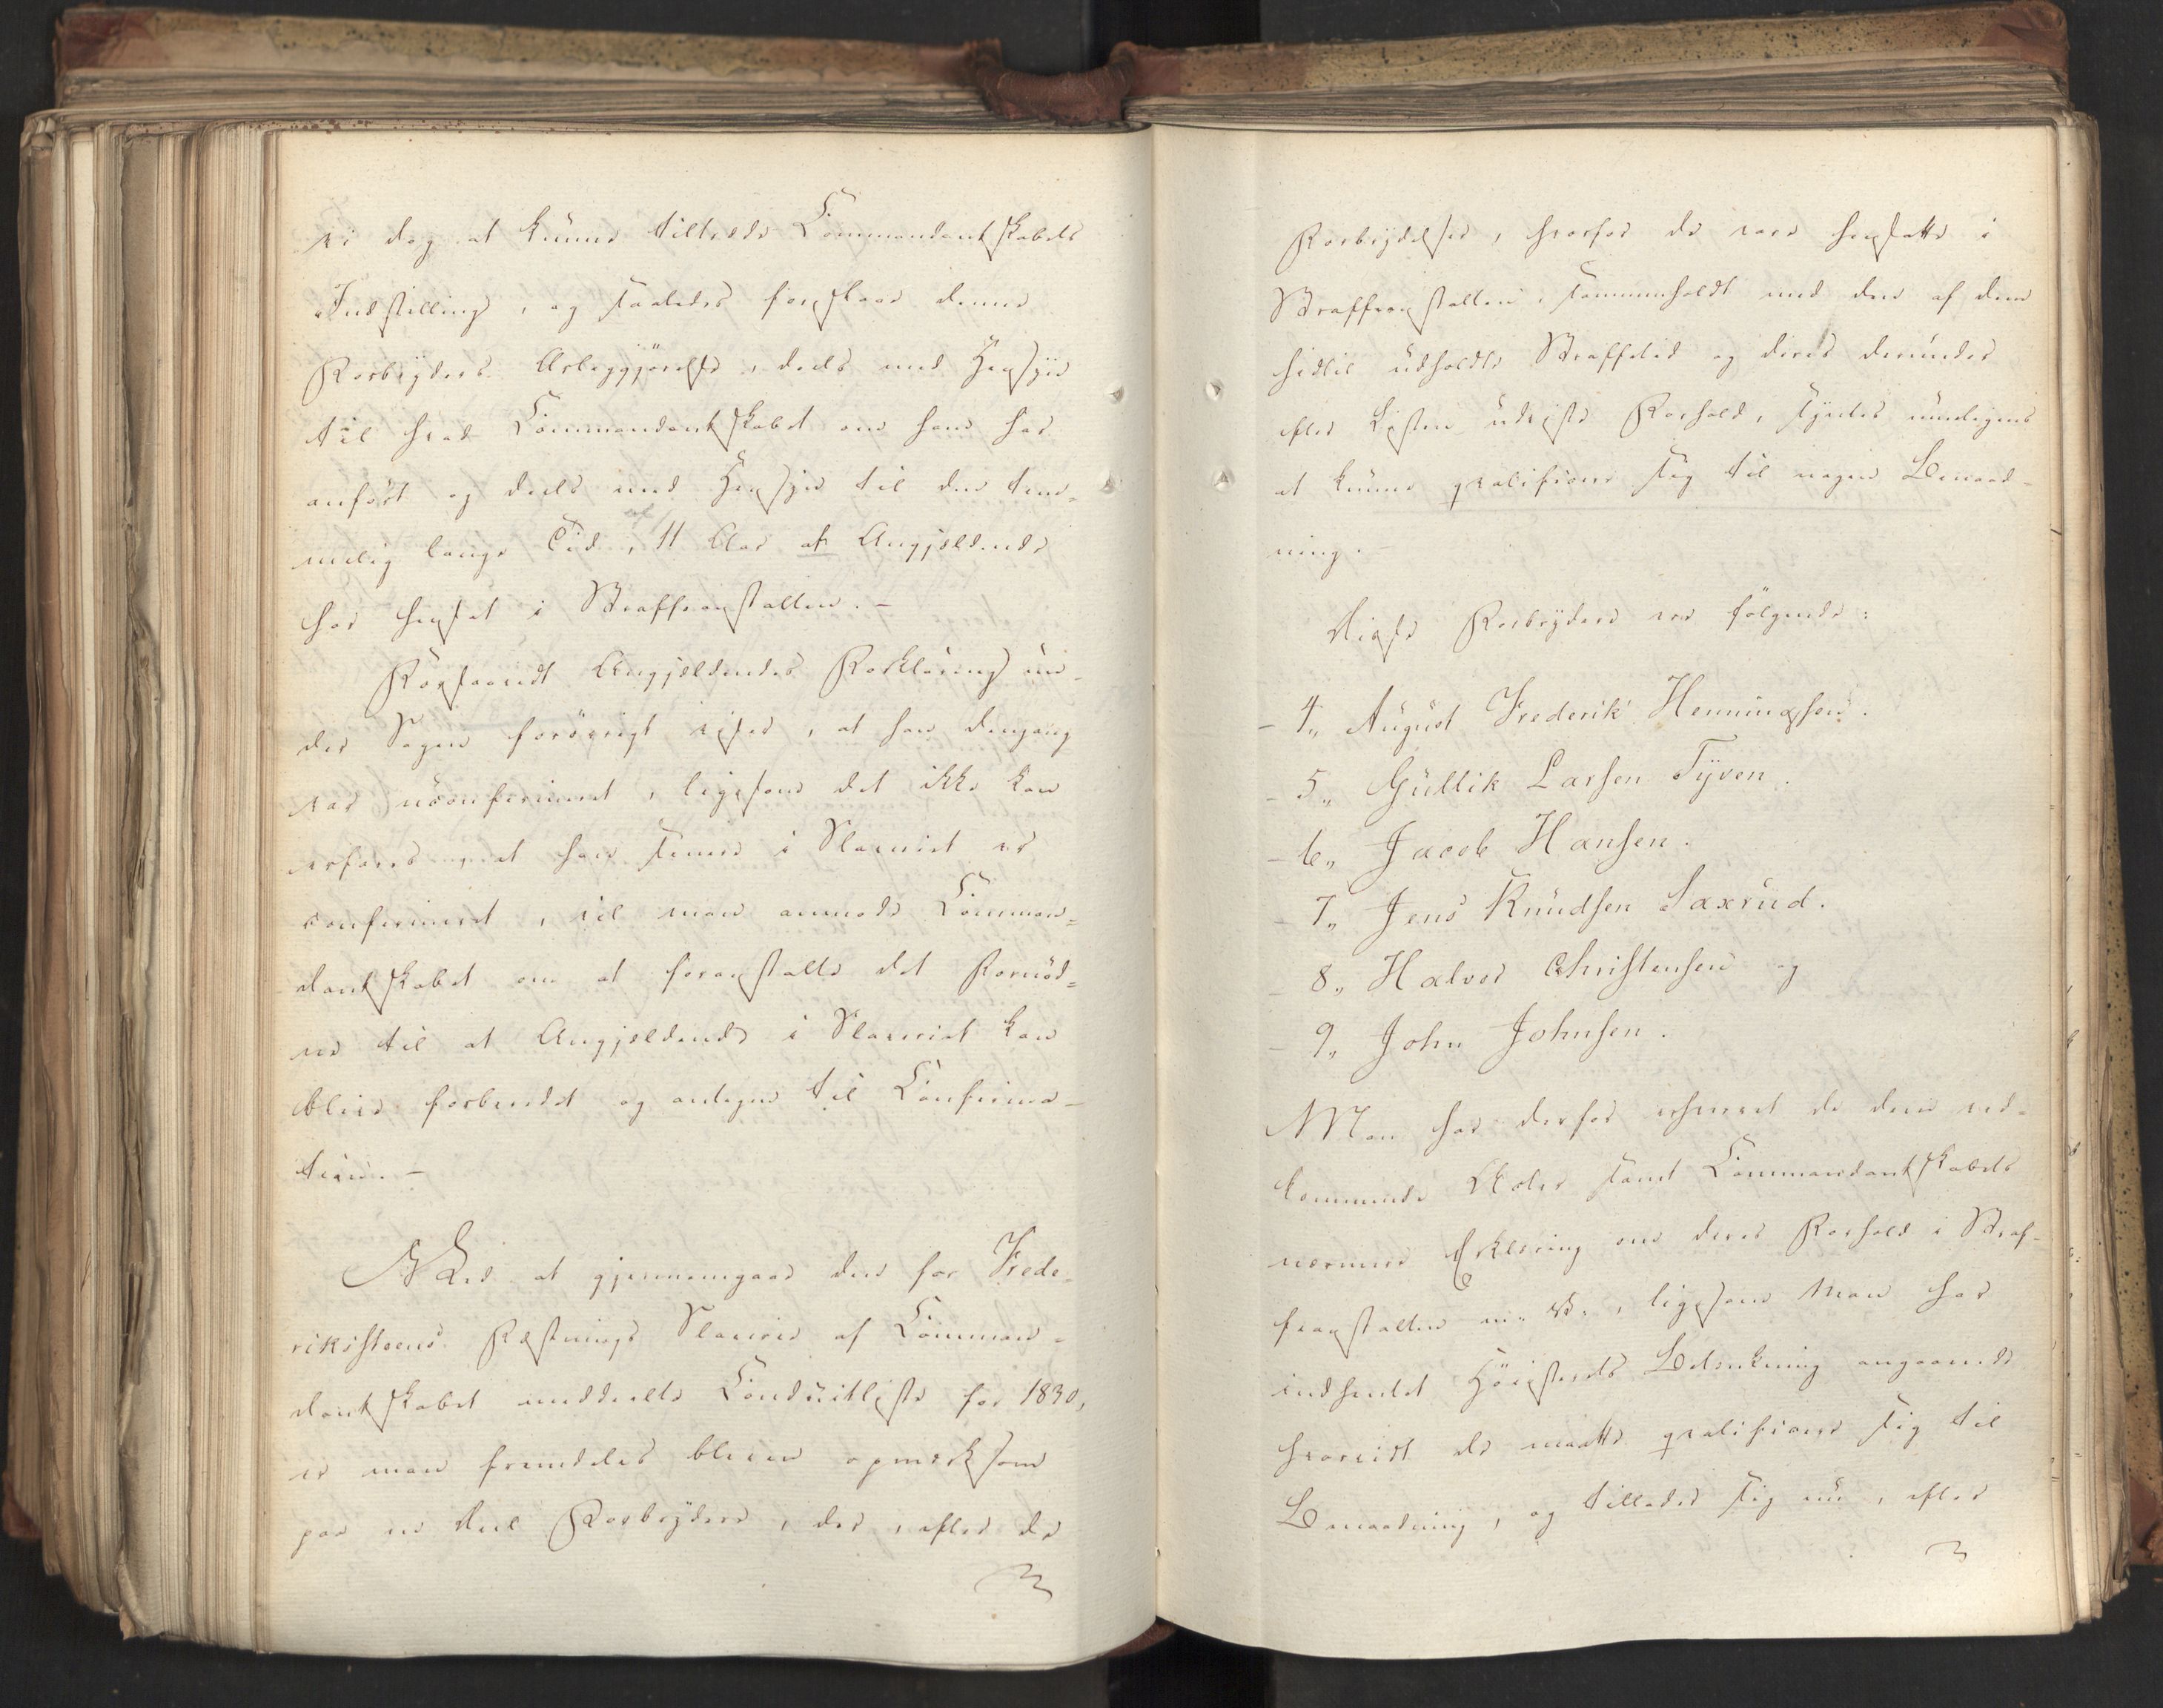 vi dog at kunne tiltræde Commandantskabets
Indstilling, og saaledes foreslaae denne
Forbryders Løsgivelse, deels med Hensyn
til hvad Commandantskabet om ham har
anført og deels med Hensyn til den tem-
melig lange Tid, af 11 Aar at Angjeldende
har hensat i Straffeanstalten. -
Forsaavidt Angjeldendes Forklaring un-
der Sagen forøvrigt viser, at han dengang
var uconfirmeret, ligesom det ikke kan
erfares, at han senere i Slaveriet er
confirmeret, vil man anmode Comman-
dantskabet om at foranstalte det Fornød-
ne til at Angjeldende i Slaveriet kan
blive forberedet og antagen til Confirma-
tion. -
Ved at gjennemgaae den for Frede-
riksteens Fæstnings Slaverie af Comman-
dantskabet meddeelte Conduitliste for 1830,
er man fremdeles bleven opmærksom
paa en Deel Forbrydere, der, efter de
Forbrydelser, hvorfor de vare hensatte i
Straffeanstalten, sammenholdt med den af dem
hidtil udholdte Straffetid og deres derunder
efter Listen udviste Forhold, syntes muligens
at kunne qvalificere sig til nogen Benaad-
ning.
Disse Forbrydere ere følgende:
- 4, August Frederik Henningsen.
- 5, Gullik Larsen Tyven.
- 6, Jacob Hansen.
- 7, Jens Knudsen Saxrud.
- 8, Halvor Christensen og
- 9, John Johnsen.
Man har derfor erhvervet de dem ved-
kommende Acter samt Commandantskabets
nærmere Erklæring om deres Forhold i Straf-
feanstalten m. V., ligesom Man har
indhentet Høiesterets Betænkning angaaende
hvorvidt de maatte qvalificere sig til
Benaadning, og tillader sig nu, efter